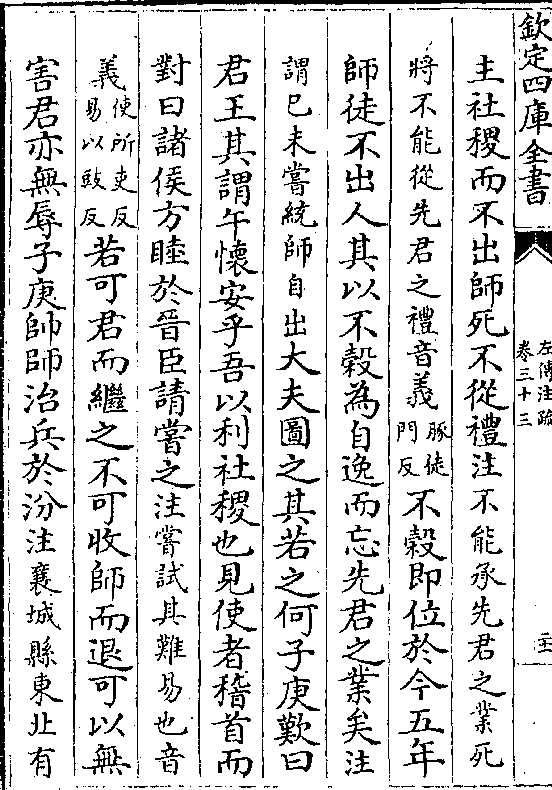 欽定四庫全書
左傳注疏
卷三十三
二十一
主社稷而不出師死不從禮注不能承先君之業死
將不能從先君之禮音義豚徒門反不穀即位於今五年
師徒不出人其以不穀為自逸而忘先君之業矣注
謂已未嘗統師自出大夫圖之其若之何子庚歎曰
君王其謂午懷安乎吾以利社稷也見使者稽首而
對曰諸侯方睦於晉臣請嘗之注嘗試其難易也音
義使所吏反易以豉反若可君而繼之不可收師而退可以無
害君亦無辱子庚帥師治兵於汾注襄城縣東北有